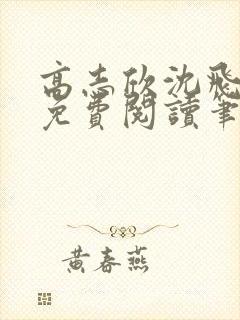 高志欣沈飛
免費閱讀筆
黃春燕